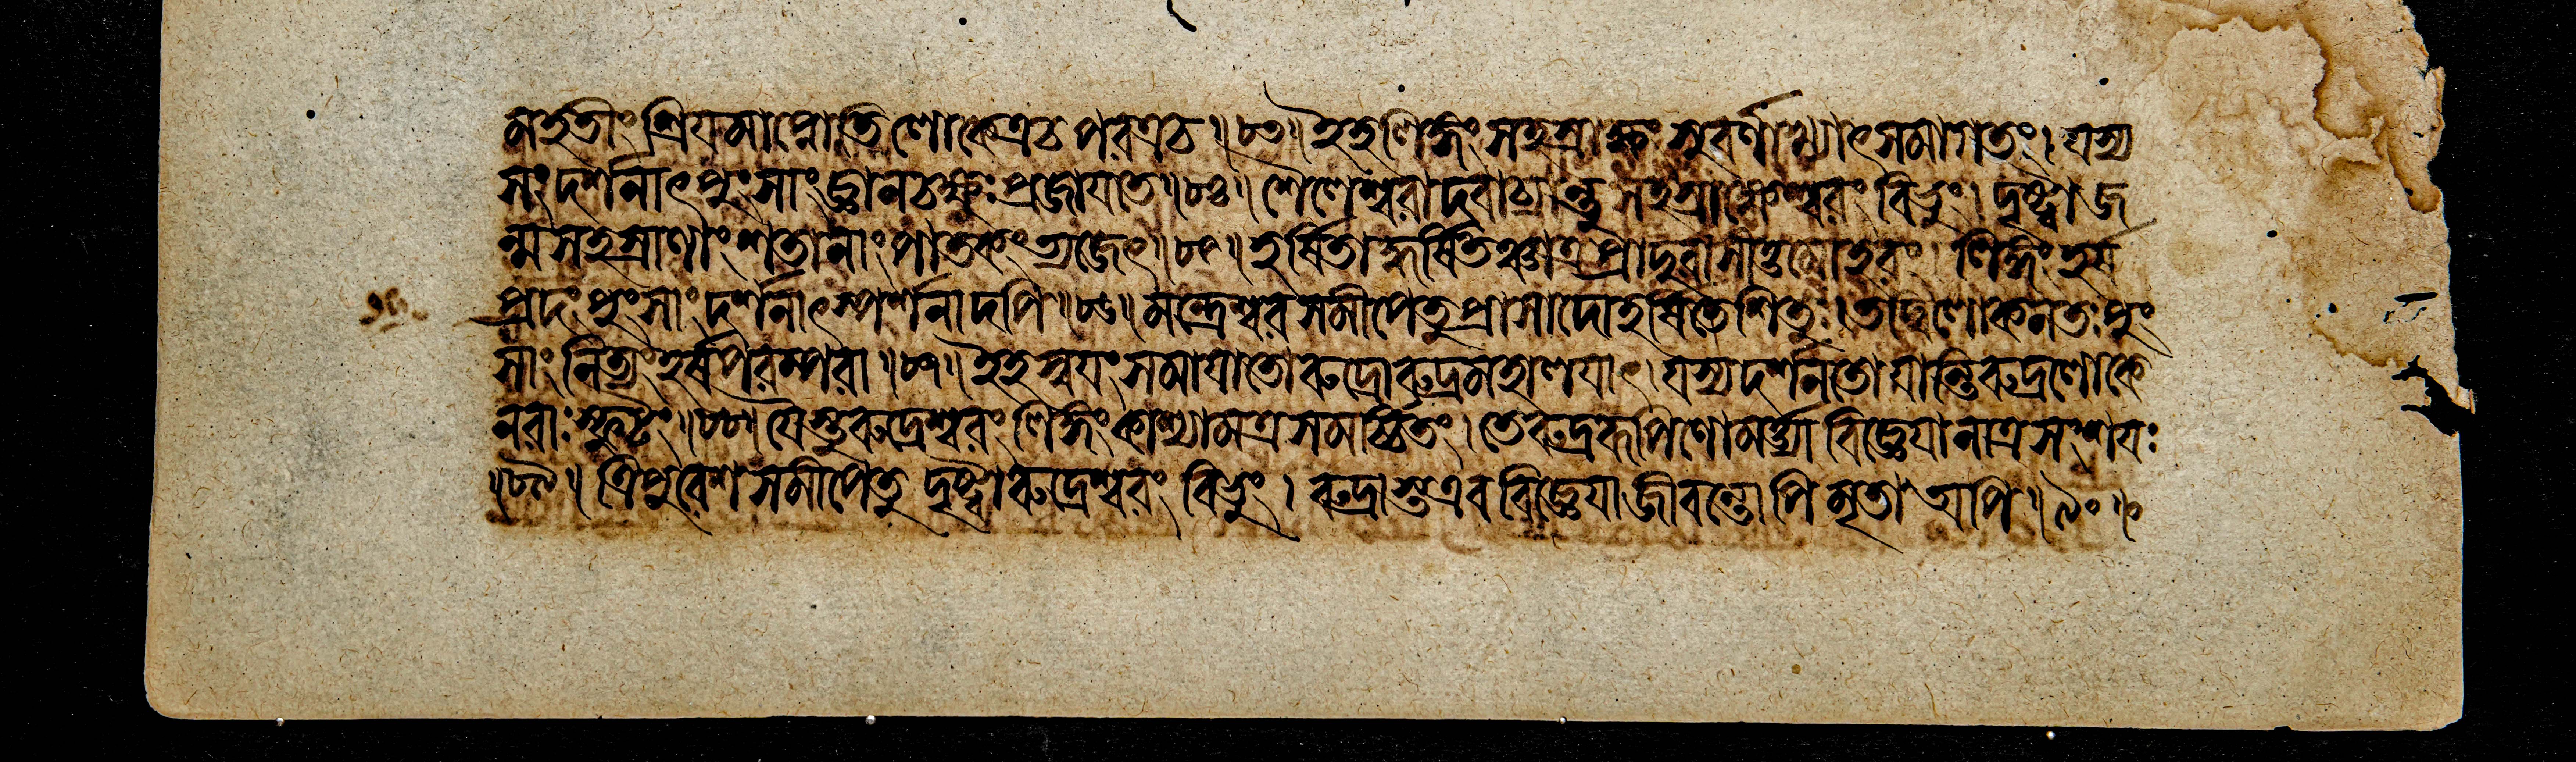 মহতীং শ্রিয়মাপ্নোতি লোকেত্রচ পরত্রচ ॥৮৩॥ ইহলিঙ্গং সহস্রাক্ষং সুবর্ণাখ্যাৎসমাগতং। যস্য
সংদর্শনাৎপুংসাং জ্ঞানচক্ষুঃ প্রজায়তে ॥৮৪॥ শৈলেশ্বরাদবাচ্যান্তু সহস্রাক্ষেশ্বরং বিভুং। দৃষ্ট্বা জ
ন্মসহস্রাণাং শতানাং পাতকং ত্যজেৎ ॥৮৫॥ হর্ষিতাদ্ধর্ষিতঞ্চাত্র প্রাদুরাসীত্তমোহরং। লিঙ্গং হর্ষ
প্রদং পুংসাং দর্শনাৎস্পর্শনাদপি ॥৮৬॥ মন্ত্রেশ্বরসমীপেতু প্রাসাদো হর্ষিতেশিতুঃ। তদ্বিলোকনতঃ পুং
সাং নিত্যং হর্ষপরম্পরা ॥৮৭॥ ইহ স্বয়ং সমায়াতো রুদ্রো রুদ্রমহালয়াৎ। যস্যদর্শনতো যান্তি রুদ্রলোকে
নরাঃ স্ফুটং ॥৮৮॥ যৈস্তু রুদ্রেশ্বরং লিঙ্গং কাশ্যামত্র সমর্চ্চিতং। তে রুদ্ররূপিণো মর্ত্ত্যা বিজ্ঞেয়া নাত্র সংশয়ঃ
॥৮৯॥ ত্রিপুরেশ সমীপেতু দৃষ্ট্বা রুদ্রেশ্বরং বিভুং। রুদ্রাস্তএব বিজ্ঞেয়া জীবন্তোপি মৃতা অপি ॥৯০॥